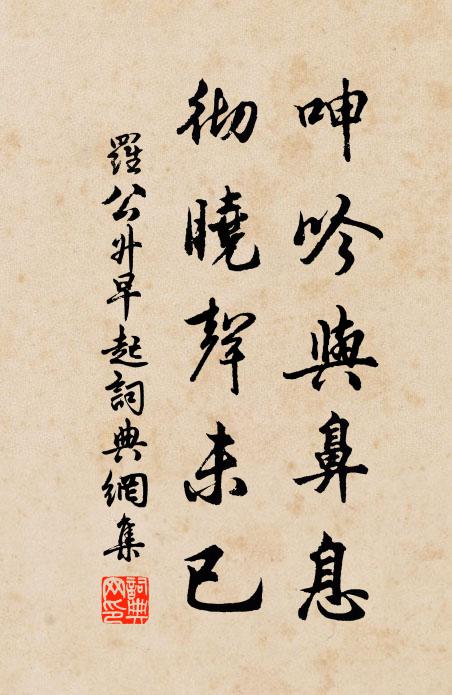 呻吟與鼻息
彻曉聲未已
羅公升早起詞典網集
詞典網印